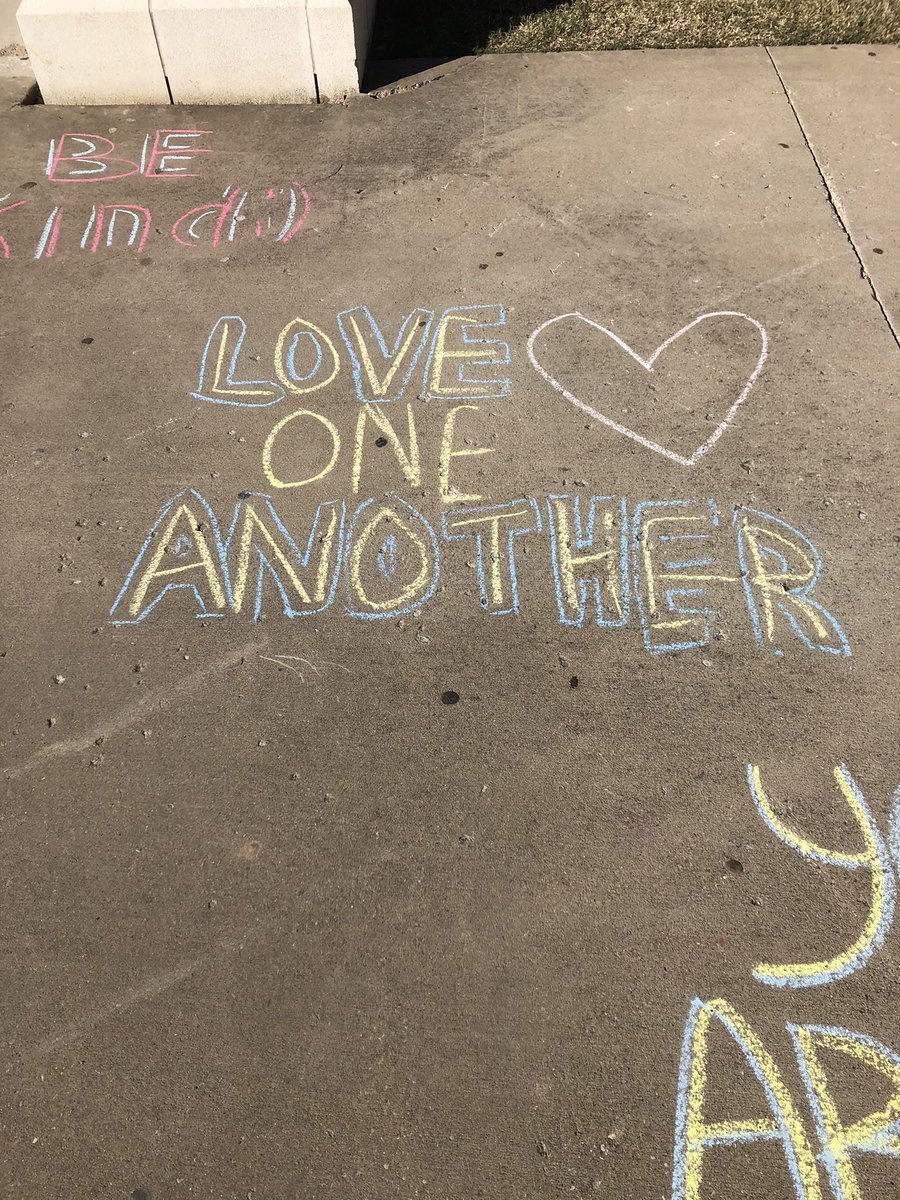 BE
kind :)
LOVE
ONE
ANOTHER